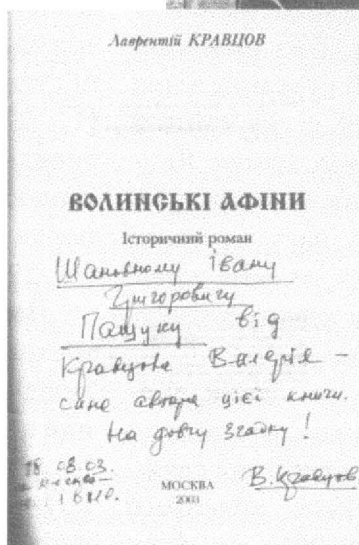 Лаврентій КРАВЦОВ
ВОЛИНСЬКІ АФІНИ
Історичний роман
Шановному Івану
Григоровичу
Пащуку від
Кравцова Валерія –
сина автора цієї книги.
На довгу згадку!
08.03.
МОСКВА
2003
В. Кравцов